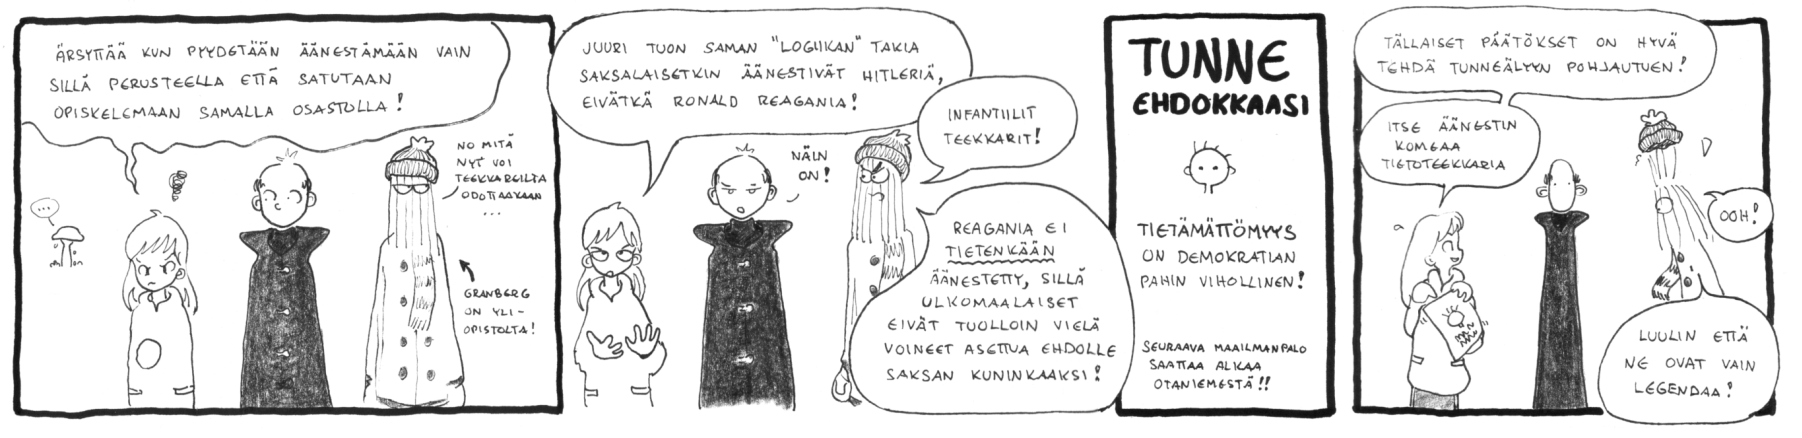 ÄRSYTTÄÄ KUN PYYDETÄÄN ÄÄNESTÄMÄÄN VAIN
SILLÄ PERUSTEELLA ETTÄ SATUTAAN
OPISKELEMAAN SAMALLA OSASTOLLA!
...
NO MITÄ
NYT VOI
TEEKKAREILTA
ODOTTAAKAAN
...
GRANBERG
ON YLI-
OPISTOLTA!
JUURI TUON SAMAN "LOGIIKAN" TAKIA
SAKSALAISETKIN ÄÄNESTIVÄT HITLERIÄ,
EIVÄTKÄ RONALD REAGANIA!
NÄIN
ON!
INFANTIILIT
TEEKKARIT!
REAGANIA EI
TIETENKÄÄN
ÄÄNESTETTY, SILLÄ
ULKOMAALAISET
EIVÄT TUOLLOIN VIELÄ
VOINEET ASETTUA EHDOLLE
SAKSAN KUNINKAAKSI!
TUNNE
EHDOKKAASI
TIETÄMÄTTÖMYYS
ON DEMOKRATIAN
PAHIN VIHOLLINEN!
SEURAAVA MAAILMANPALO
SAATTAA ALKAA
OTANIEMESTÄ!!
TÄLLAISET PÄÄTÖKSET ON HYVÄ
TEHDÄ TUNNEÄLYYN POHJAUTUEN!
ITSE ÄÄNESTIN
KOMEAA
TIETOTEEKKARIA
OOH!
LUULIN ETTÄ
NE OVAT VAIN
LEGENDAA!